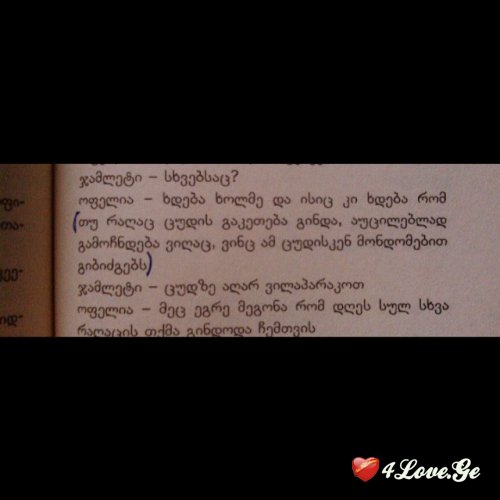 ჯამლეტი – სხვებსაც?
ფი-
ოფელია – ხდება ხოლმე და ისიც კი ხდება რომ
თა-
(თუ რაღაც ცუდის გაკეთება გინდა, აუცილებლად
გამოჩნდება ვიღაც, ვინც ამ ცუდისკენ მონდომებით
გიბიძგებს)
ჯამლეტი – ცუდზე აღარ ვილაპარაკოთ
ოფელია – მეც ეგრე მეგონა რომ დღეს სულ სხვა
იდ-
რაღაცის თქმა გინდოდა ჩემთვის
4Love.Ge